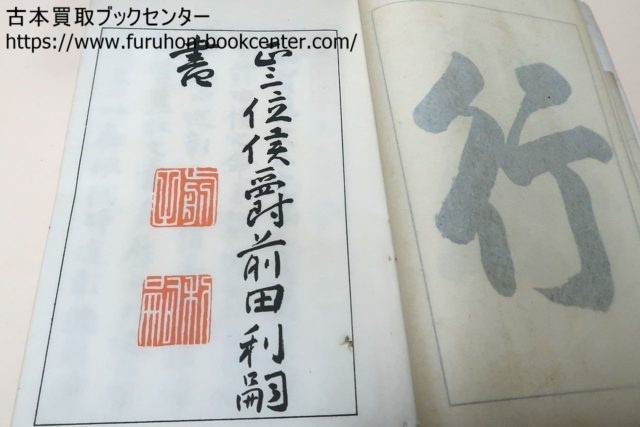 古本買取ブックセンター
https://www.furuhon-bookcenter.com/
行
正三位侯爵前田利嗣
書
利嗣